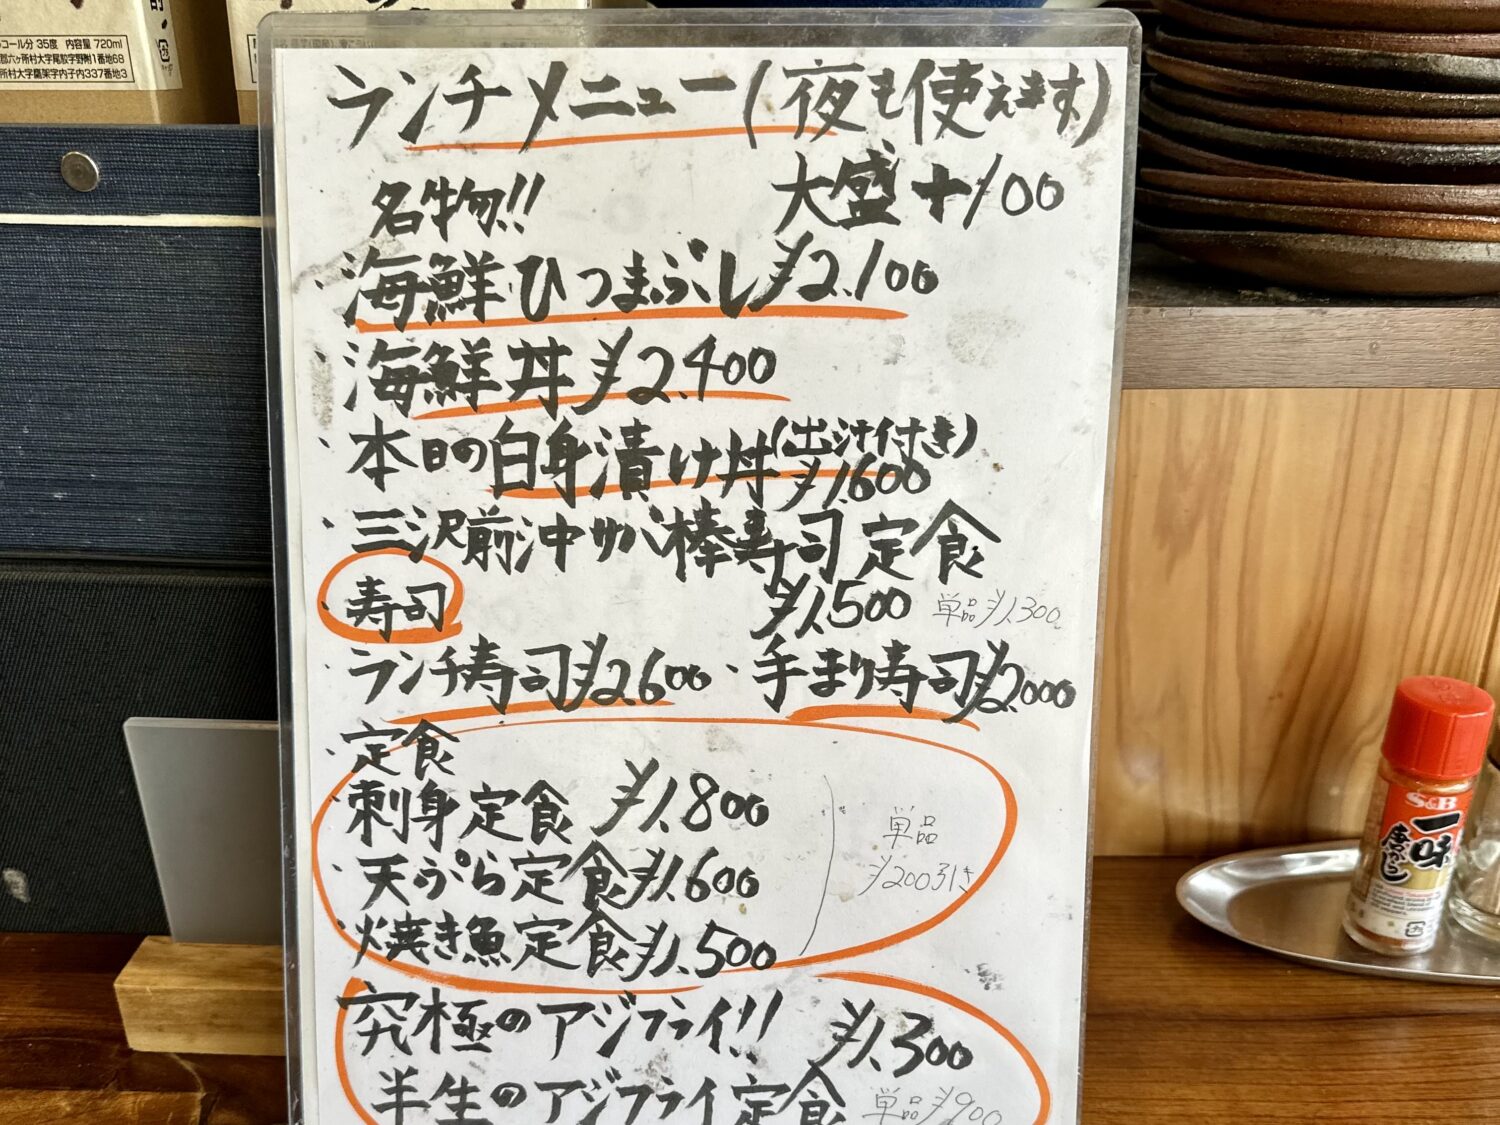 コール分 35度 内容量 720ml
郡六ヶ所村大字尾駮字野附1番地68
所村大字鷹架字内子内337番地3
ランチメニュー(夜も使えます)
名物!! 大盛+100
・海鮮ひつまぶし ¥2.100
・海鮮丼 ¥2.400
・本日の白身漬け丼(出汁付き)
¥1.600
・三沢前沖サバ棒寿司定食
¥1.500 単品¥1.300
・寿司
ランチ寿司¥2.600・手まり寿司¥2.000
・定食
刺身定食 ¥1.800
天ぷら定食¥1.600
焼き魚定食¥1.500
単品
¥200引き
究極のアジフライ!! ¥1.300
半生のアジフライ定食 単品¥900
S&B
一味
唐からし